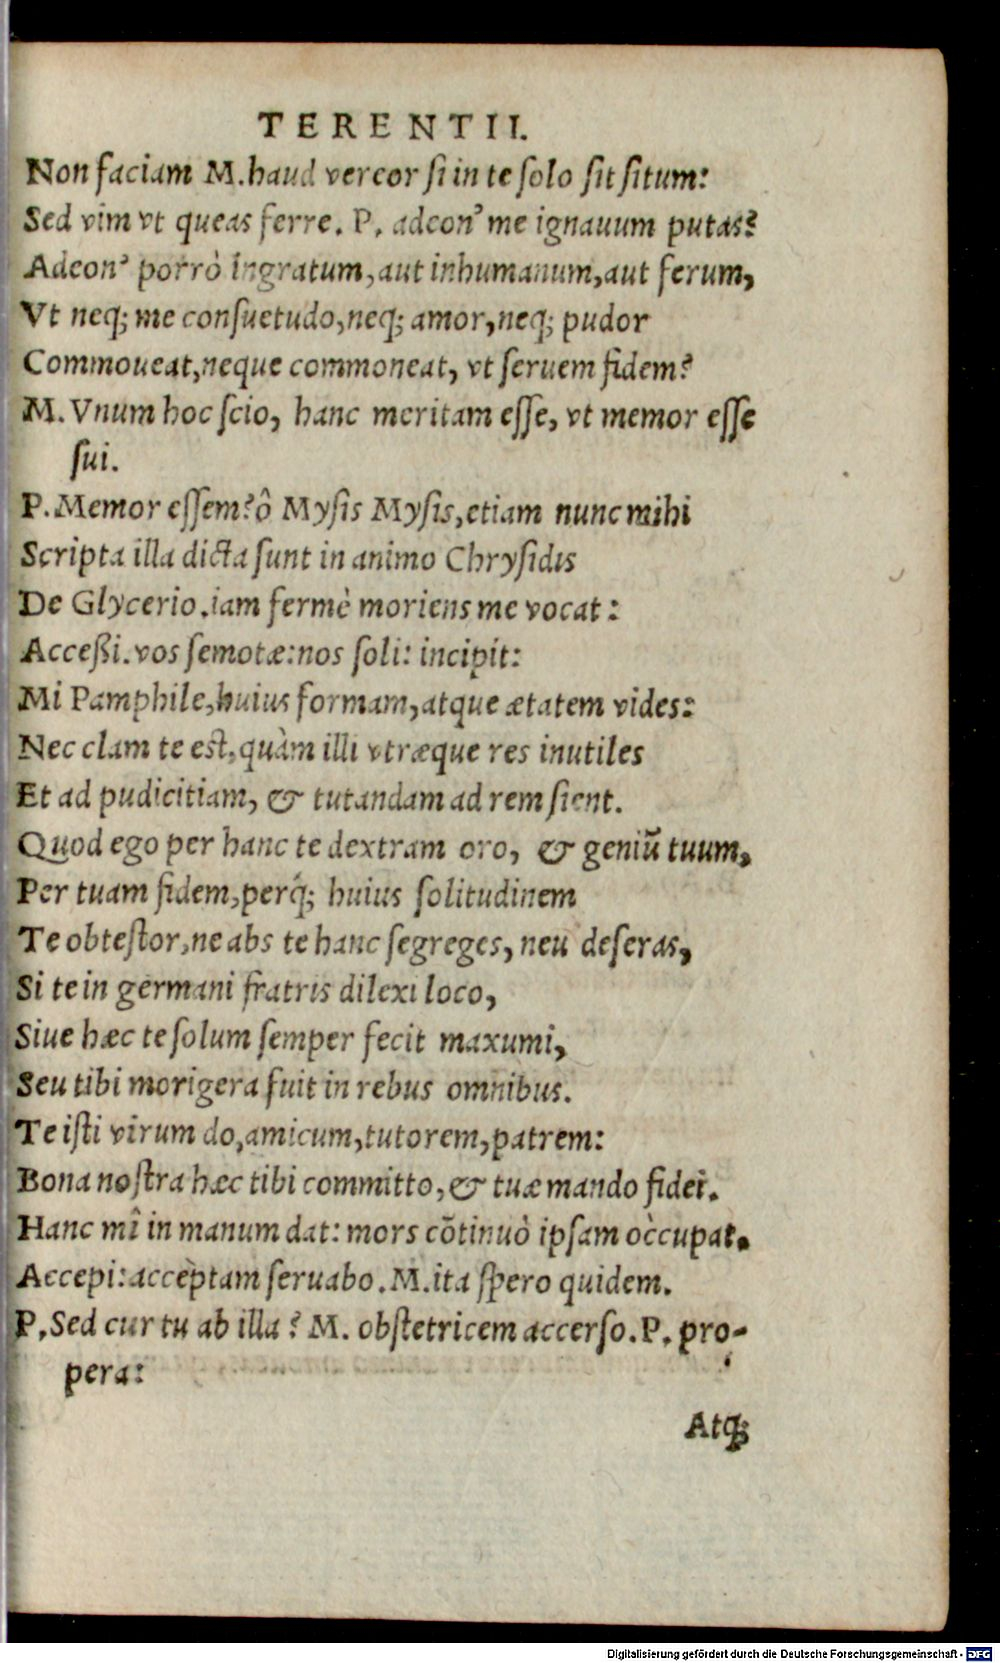 TERENTII.
Non faciam M.haud vereor ſi in te ſolo ſit ſitum:
Sed vim vt queas ferre. P. adeon' me ignauum putas?
Adeon' porrò ingratum,aut inhumanum,aut ferum,
Vt neq; me conſuetudo,neq; amor,neq; pudor
Commoueat,neque commoneat, vt ſeruem fidem?
M.Vnum hoc ſcio, hanc meritam eſſe, vt memor eſſe
ſui.
P.Memor eſſem?ô Myſis Myſis,etiam nunc mihi
Scripta illa dicta ſunt in animo Chryſidis
De Glycerio.iam fermè moriens me vocat:
Acceßi.vos ſemotæ:nos ſoli: incipit:
Mi Pamphile,huius formam,atque ætatem vides:
Nec clam te est,quàm illi vtræque res inutiles
Et ad pudicitiam, & tutandam ad rem ſient.
Quod ego per hanc te dextram oro, & geniũ tuum,
Per tuam fidem,perq́; huius ſolitudinem
Te obteſtor,ne abs te hanc ſegreges, neu deſeras,
Si te in germani fratris dilexi loco,
Siue hæc te ſolum ſemper fecit maxumi,
Seu tibi morigera fuit in rebus omnibus.
Te iſti virum do,amicum,tutorem,patrem:
Bona noſtra hæc tibi committo,& tuæ mando fidei.
Hanc mî in manum dat: mors cõtinuò ipſam occupat.
Accepi:acceptam ſeruabo.M.ita ſpero quidem.
P.Sed cur tu ab illa? M. obſtetricem accerſo.P. pro-
pera:
Atq;
Digitalisierung gefördert durch die Deutsche Forschungsgemeinschaft - DFG